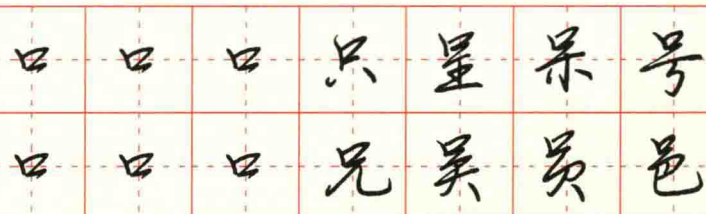 口口口只呈呆号
口口口兄吴员邑